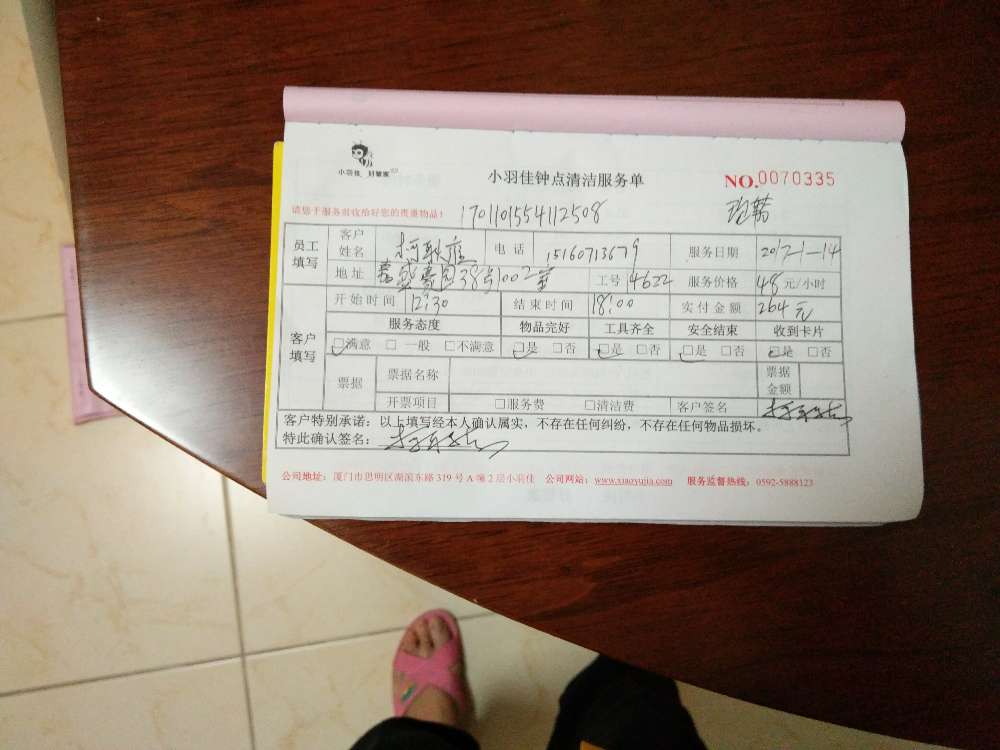 小羽佳 好管家
小羽佳钟点清洁服务单
NO.0070335
请您于服务前收拾好您的贵重物品！ 1701101554112508
员工填写 客户姓名 电话 15160713679 服务日期 2017-1-14
地址 嘉盛豪园38号1002室 工号 14622 服务价格 48元/小时
客户填写 开始时间 12:30 结束时间 18:00 实付金额 264元
服务态度 物品完好 工具齐全 安全结束 收到卡片
□满意 □一般 □不满意 □是 □否 □是 □否 □是 □否 □是 □否
票据 票据名称 票据金额
开票项目 □服务费 □清洁费 客户签名
客户特别承诺：以上填写经本人确认属实，不存在任何纠纷，不存在任何物品损坏。
特此确认签名：
公司地址：厦门市思明区湖滨东路 319 号 A 幢 2 层小羽佳 公司网站：www.xiaoyujia.com 服务监督热线：0592-5888123